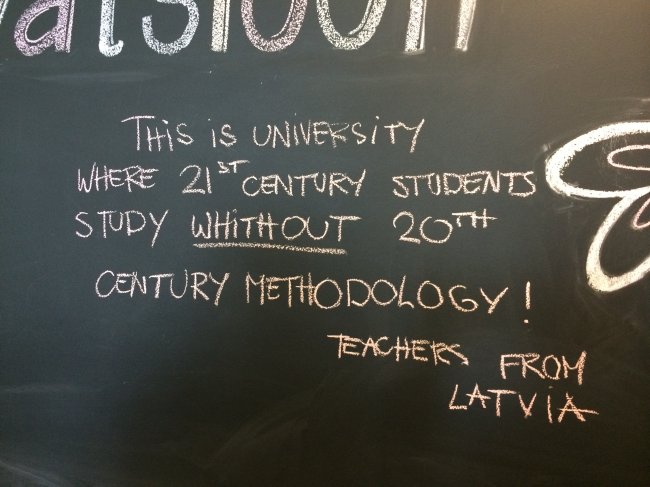 THIS IS UNIVERSITY
WHERE 21ST CENTURY STUDENTS
STUDY WHITHOUT 20TH
CENTURY METHODOLOGY!
TEACHERS FROM
LATVIA